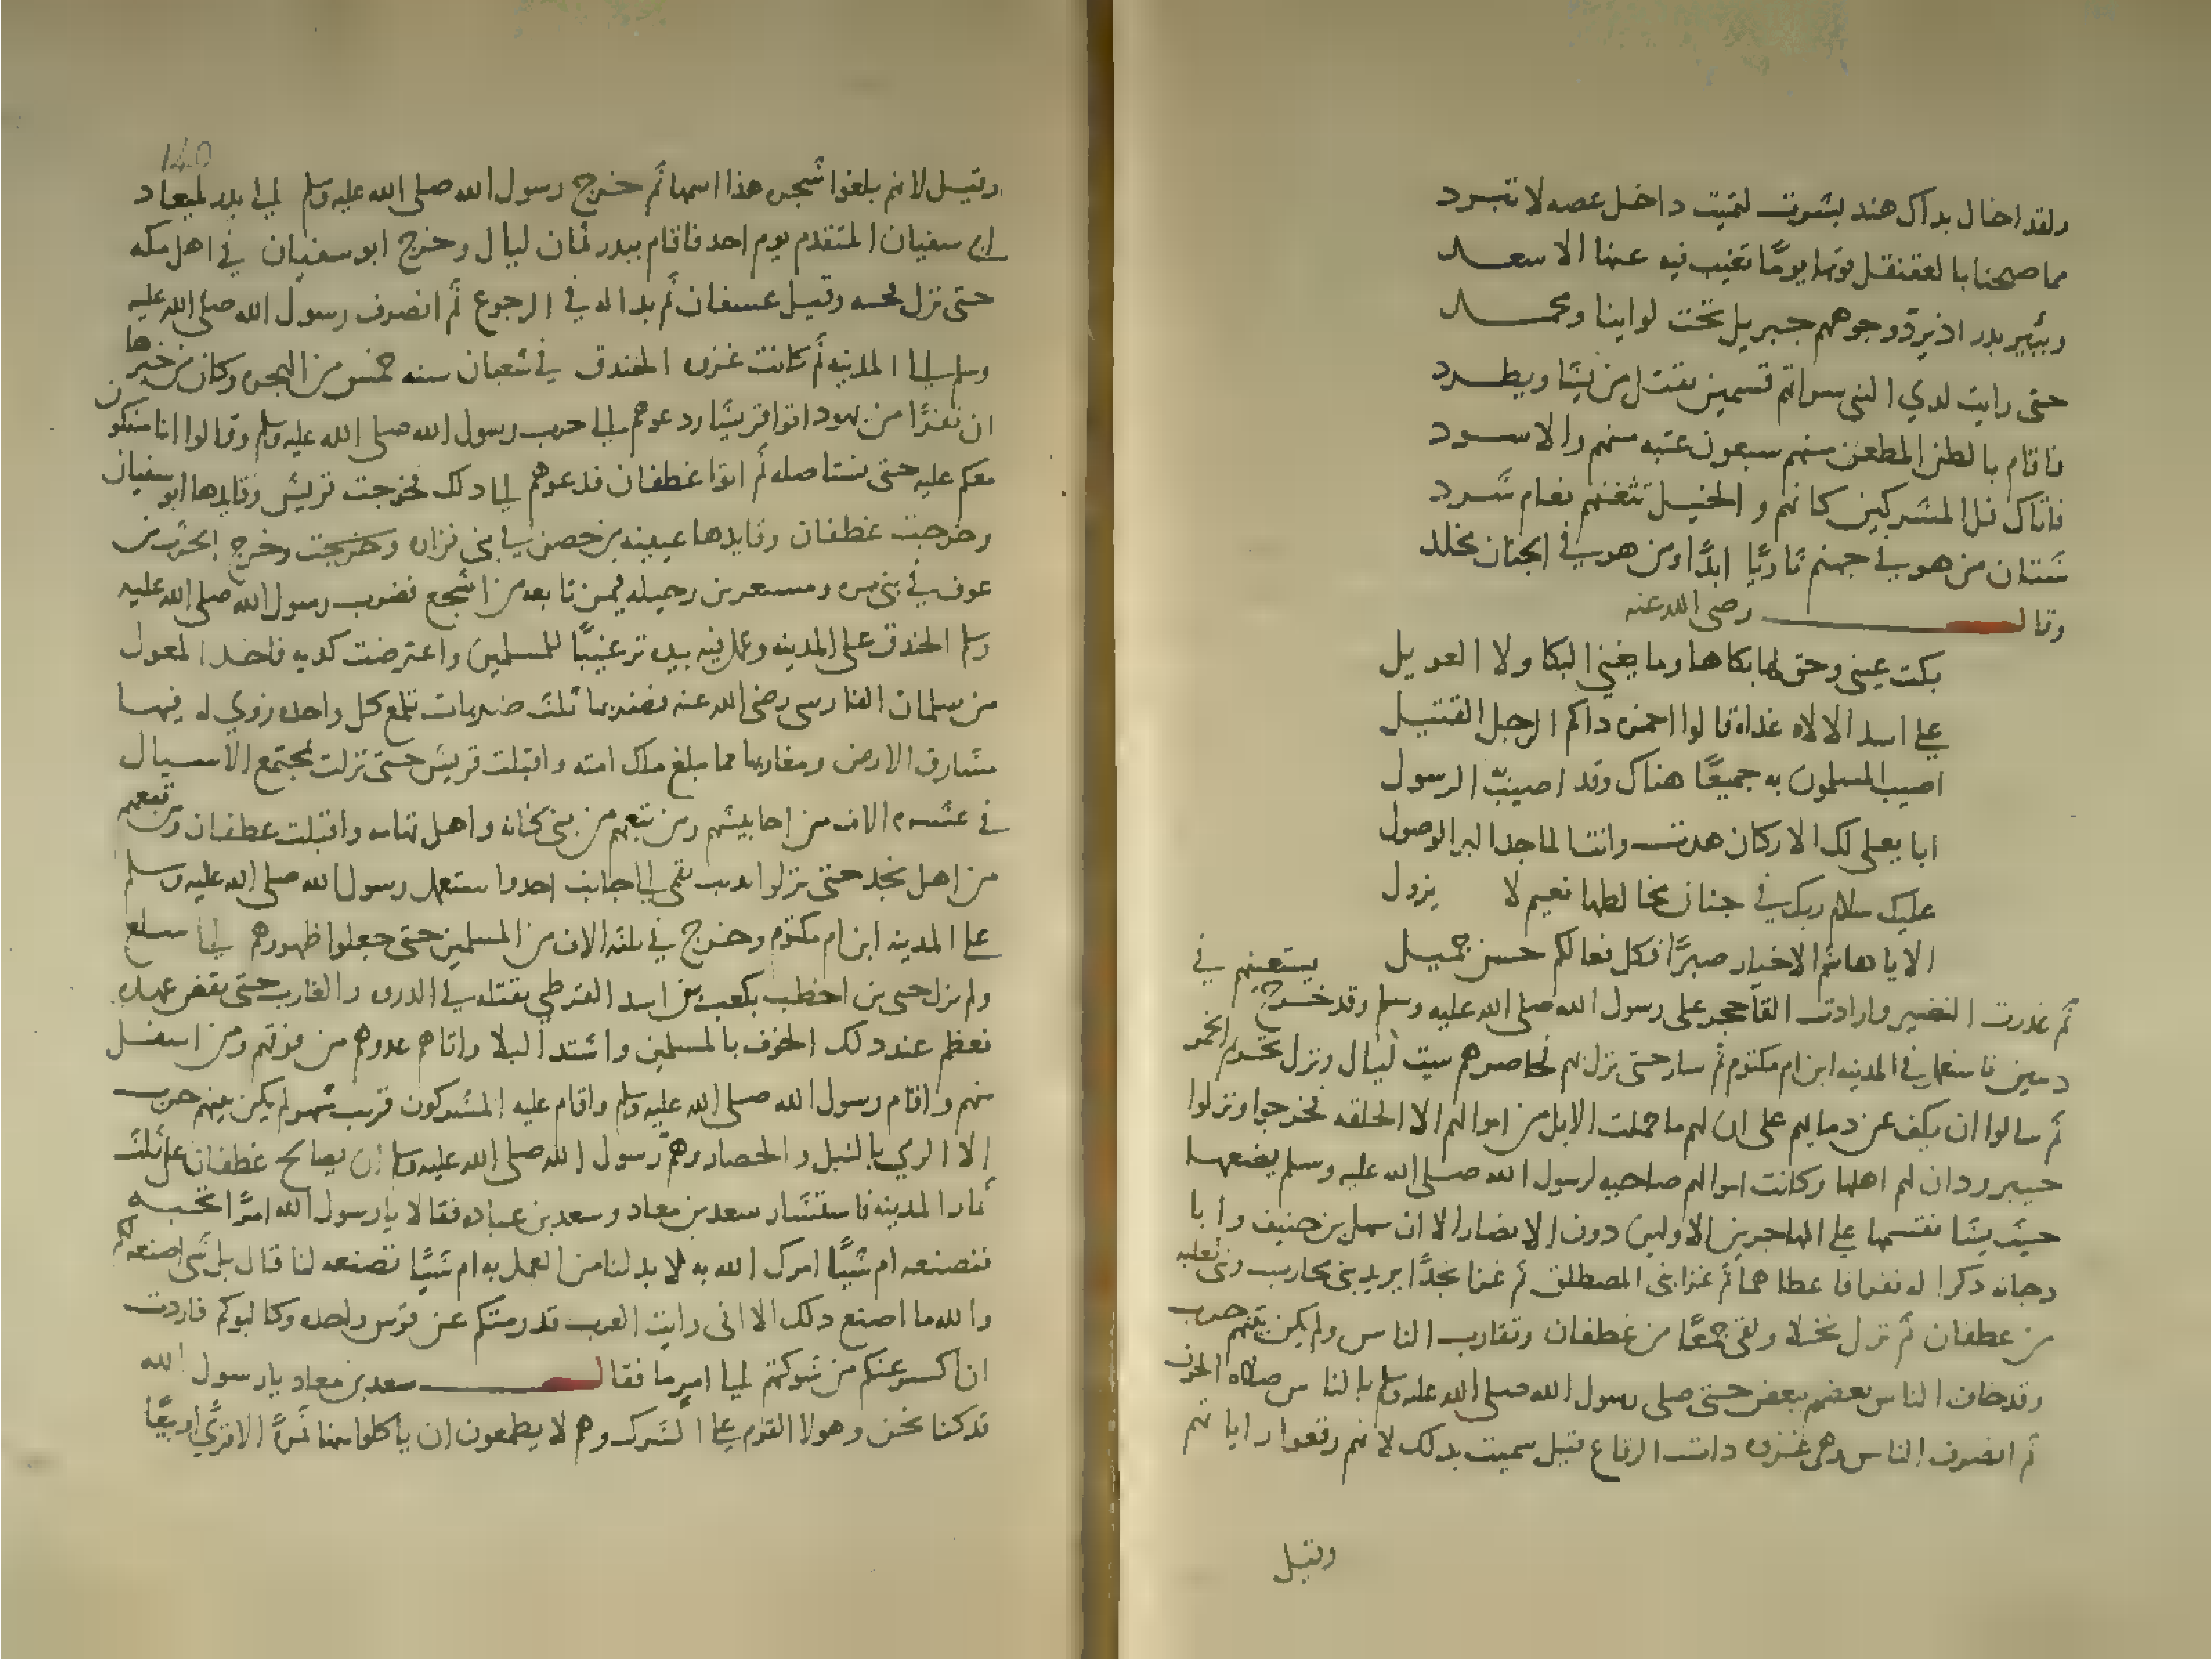 ولقد اخال بداك هند بشرت لتميت داخل غصه لا تبرد
مما صبحنا بالعقنقل قومها يومًا تغيب فيه عنها الاسعد
وببئر بدر اذ يردّ وجوههم جبريل تحت لواينا ومحمد
حتى رايت لدي النبى سراتهم قسمين يقتل من يشا ويطرد
فاقام بالعطن المعطن منهم سبعون عتبه منهم والاسود
فاتاك فل المشركين كانهم والخيل تثفنهم نعام شرد
شتان من هو في جهنم ثاويًا ابدًا ومن هو في الجنان مخلد
وقال رضى الله عنه
بكت عينى وحق لها بكاها وما يغني البكا ولا العويل
على اسد الالاه غداة قالوا احمزه داكم الرجل القتيل
اصيب المسلمون به جميعًا هناك وقد اصيب الرسول
ابا يعلى لك الاركان هدت وانت الماجد البر الوصول
عليك سلام ربك في جنان مخالطها نعيم لا يزول
الا يا هاشم الاخيار صبرًا فكل فعالكم حسن جميل
ثم غدرت النضير وارادت القا حجر على رسول الله صلى الله عليه وسلم وقد خرج يستعينهم في
دمين فاستعمل في المدينه ابن ام مكتوم ثم سار حتى نزل بهم فحاصرهم ست ليال ونزل تحريم الخمر
ثم سالوا ان يكف عن دمايهم على ان لهم ما حملت الابل من اموالهم الا الحلقه فخرجوا ونزلوا
خيبر ودان لهم اهلها وكانت اموالهم صافيه لرسول الله صلى الله عليه وسلم يضعها
حيث يشا فقسمها على المهاجرين الاولين دون الانصار الا ان سهل بن حنيف وابا
دجانه ذكرا له فقرا فاعطاهما ثم غزا بنى المصطلق ثم غزا نجدًا يريد بنى محارب وبنى ثعلبه
من غطفان ثم نزل نخلا ولقى جمعًا من غطفان وتقارب الناس ولم يكن بينهم حرب
وقد خاف الناس بعضهم بعض حتى صلى رسول الله صلى الله عليه وسلم بالناس صلاه الخوف
ثم انصرف الناس وهى غزوه دات الرقاع قيل سميت بدلك لانهم رقعوا راياتهم
وقيل
140
وقيل لانهم بلغوا شجره هذا اسمها ثم خرج رسول الله صلى الله عليه وسلم الى بدر لميعاد
ابى سفيان المتقدم يوم احد فاقام ببدر ثمان ليال وخرج ابو سفيان في اهل مكه
حتى نزل مجنه وقيل عسفان ثم بدا له في الرجوع ثم انصرف رسول الله صلى الله عليه
وسلم الى المدينه ثم كانت غزوه الخندق في شعبان سنه خمس من الهجره وكان من خبرها
ان نفرًا من يهود اتوا قريشًا ودعوهم الى حرب رسول الله صلى الله عليه وسلم وقالوا انا سنكون
معكم عليه حتى نستاصله ثم اتوا غطفان فدعوهم الى دلك فخرجت قريش وقايدها ابو سفيان
وخرجت غطفان وقايدها عيينه بن حصن في بنى فزاره وخرجت وخرج الحرث بن
عوف في بنى مره ومسعر بن رحيله فيمن تابعه من اشجع فضرب رسول الله صلى الله عليه
وسلم الخندق على المدينه وعمل فيه بيده ترغيبًا للمسلمين واعترضت كديه فاخد المعول
من سلمان الفارسى رضى الله عنه فضربها ثلث ضربات تلمع كل واحده زوي له فيها
مشارق الارض ومغاربها مما يبلغ ملك امته واقبلت قريش حتى نزلت بمجتمع الاسيال
في عشره الاف من احابيشهم ومن تبعهم من بنى كنانه واهل تهامه واقبلت غطفان ومن تبعهم
من اهل نجد حتى نزلوا بدنب نقمى الى جانب احد واستعمل رسول الله صلى الله عليه وسلم
على المدينه ابن ام مكتوم وخرج في ثلثه الاف من المسلمين حتى جعلوا ظهورهم الى سلع
ولم يزل حيى بن اخطب بكعب بن اسد القرظى يفتله في الدروه والغارب حتى نقض عهده
فعظم عند دلك الخوف بالمسلمين واشتد البلا واتاهم عدوهم من فوقهم ومن اسفل
منهم واقام رسول الله صلى الله عليه وسلم واقام عليه المشركون قرب شهر لم يكن بينهم حرب
الا الرمي بالنبل والحصار وهمّ رسول الله صلى الله عليه وسلم ان يصالح غطفان على ثلث
ثمار المدينه فاستشار سعد بن معاد وسعد بن عباده فقالا يا رسول الله امرًا تحبه
فنصنعه ام شيًّا امرك الله به لا بد لنا من العمل به ام شيًّا تصنعه لنا قال بل شى اصنعه لكم
والله ما اصنع دلك الا انى رايت العرب قد رمتكم عن قوس واحده وكالبوكم فاردت
ان اكسر عنكم من شوكتهم الى امر ما فقال سعد بن معاد يا رسول الله
قد كنا نحن وهولا القوم على الشرك وهم لا يطمعون ان ياكلوا منها ثمرةً الا قرًي او بيعًا